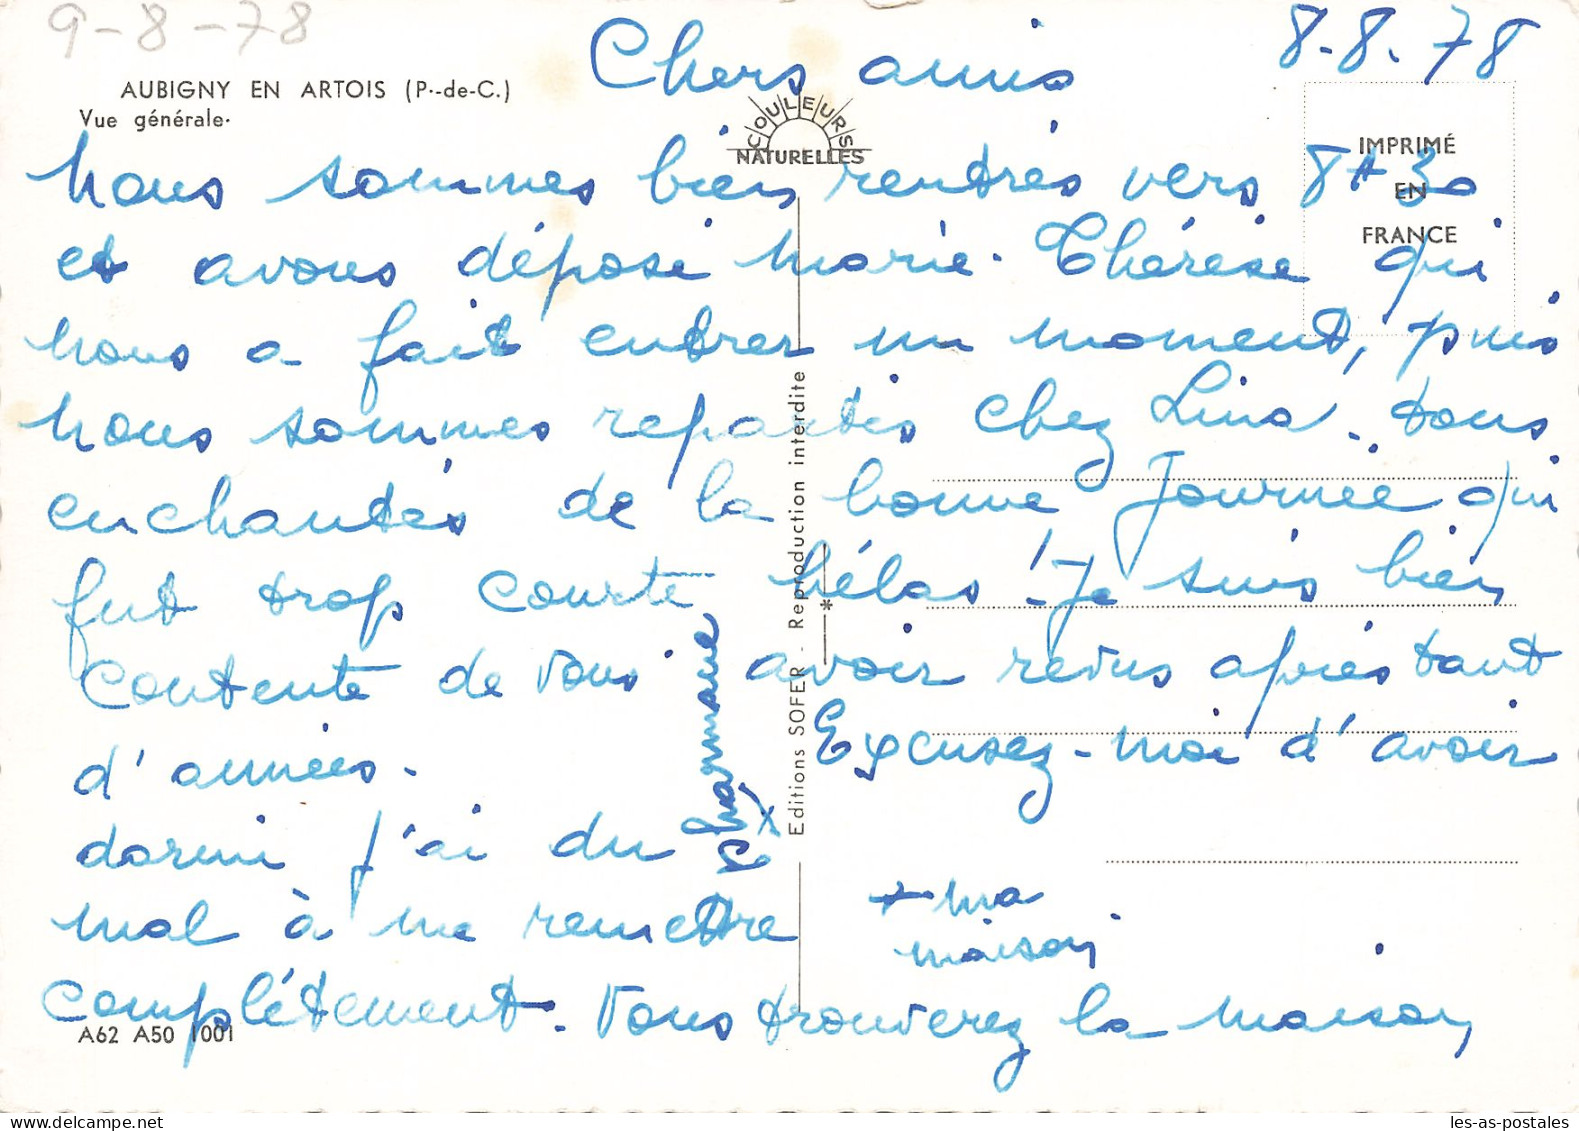 9-8-78
8.8.78
Chers amis
AUBIGNY EN ARTOIS (P.-de-C.)
Vue générale.
COULEURS
NATURELLES
IMPRIMÉ
EN
FRANCE
nous sommes bien rentrés vers 8H30
et avons déposé Marie-Thérèse qui
nous a fait entrer un moment, puis
nous sommes repartis chez Lina. tous
enchantés de la bonne Journée qui
fut trop courte hélas ! Je suis bien
contente de vous avoir revus après tant
d'années. Excusez-moi d'avoir
dormi j'ai du
mal à me remettre
complètement. Vous trouverez la maison
+ ma
maison
charmane
Editions SOFER - Reproduction interdite
*
A62 A50 1001
les-as-postales